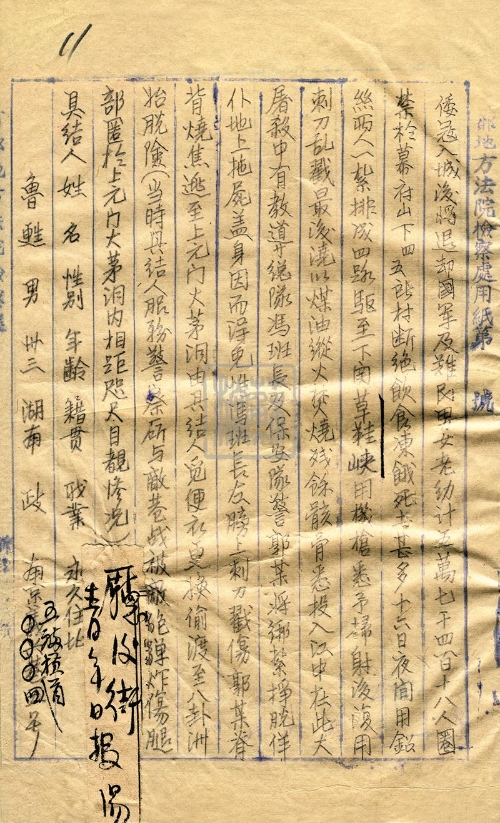 11
地方法院檢察處用紙第　號
倭寇入城後將退却國軍及難民男女老幼計五萬七千四百十八人圈
禁於幕府山下四五所村斷絕飲食凍餓死者甚多十六日夜間用鉛
絲兩人一紮排成四路驅至下關草鞋峽用機槍悉予掃射後復用
刺刀亂戳最後澆以煤油縱火焚燒殘餘骸骨悉投入江中在此大
屠殺中有教導總隊馮班長及保安隊警郭某將綁紮掙脫佯
仆地上拖屍蓋身因而得免惟馮班長左膀上刺刀戳傷郭某脊
背燒焦逃至上元門大茅洞由具結人覓便衣更換偷渡至八卦洲
始脫險（當時具結人服務警察所与敵巷战被敵砲彈炸傷腿
部匿於上元門大茅洞內相距咫尺目覩慘況）
具結人姓名　性別　年齡　籍貫　職業　永久住址
魯甦　男　卅三　湖南　政　南京
五
四号
街
青年日报